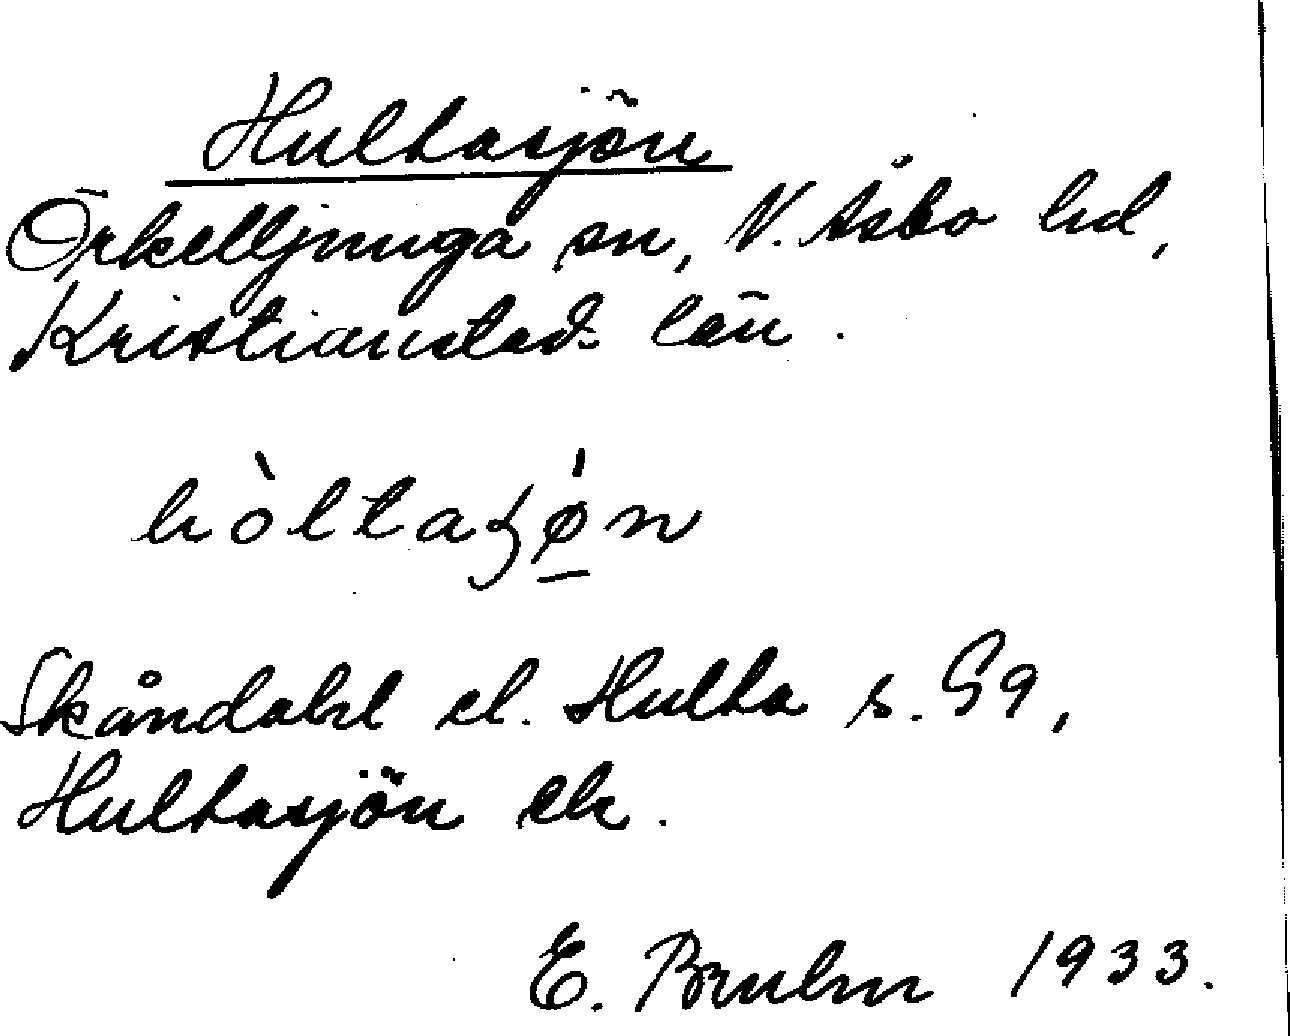 Hultasjön
Örkelljunga sn, V. Åsbo hd,
Kristianstads län.
hòltaʒǿ̲n
Skåndahl el. Hulta s. 59,
Hultasjön ek.
E. Bruhn 1933.